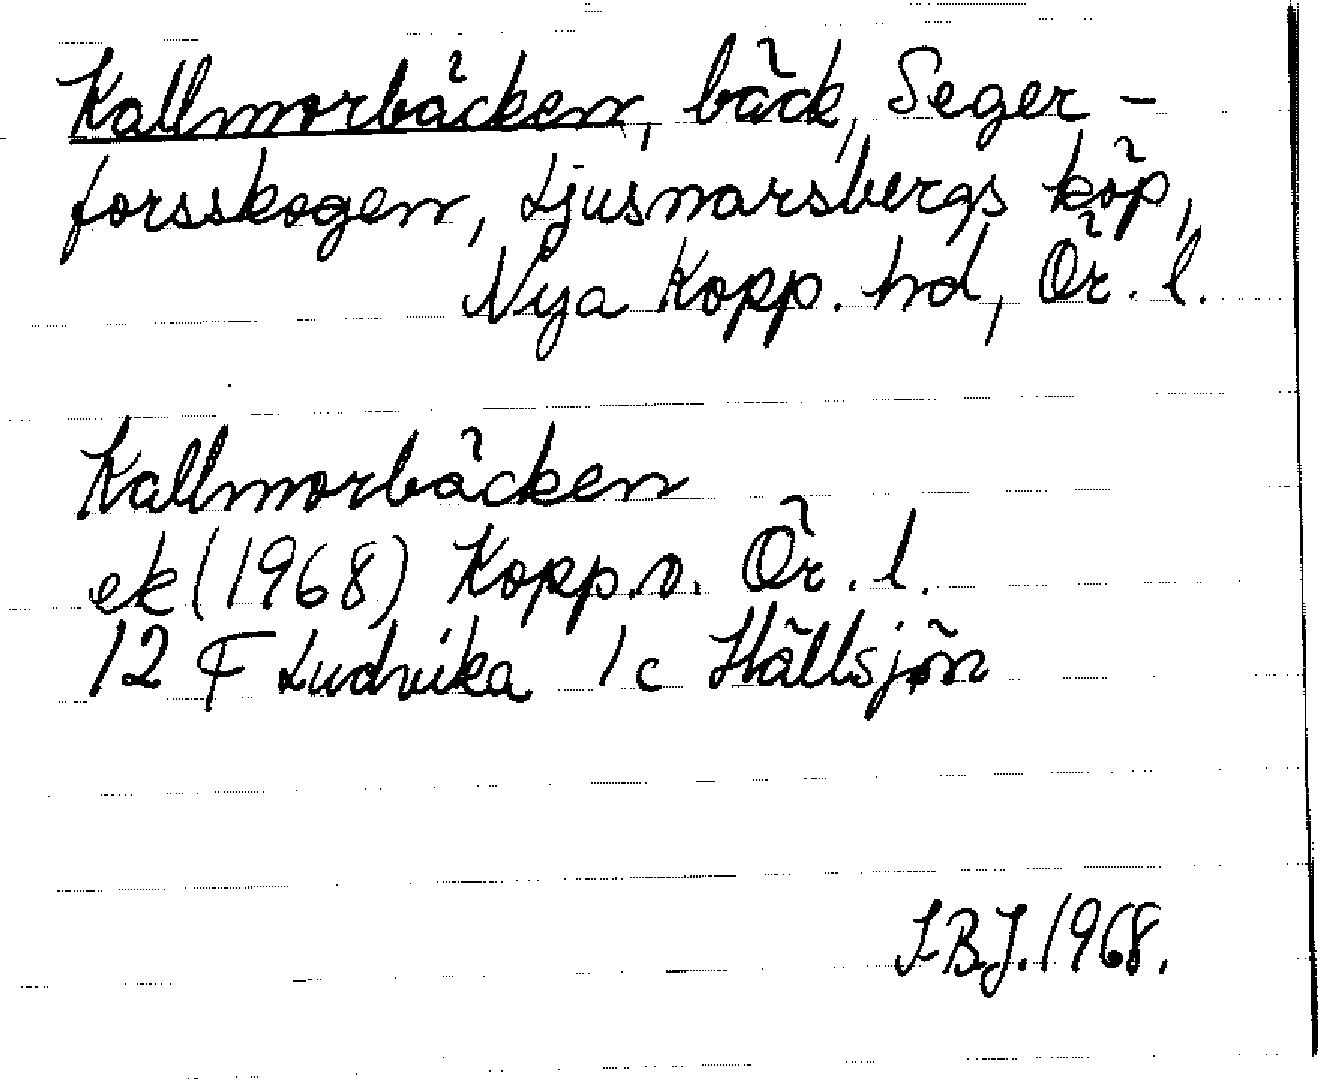 Kallmorbäcken, bäck, Seger-
forsskogen, Ljusnarsbergs köp,
Nya Kopp. hd, Ör. l.
Kallmorbäcken
ek (1968) Kopp.v. Ör. l.
12 F Ludvika 1 c Hällsjön
I.B.J. 1968.